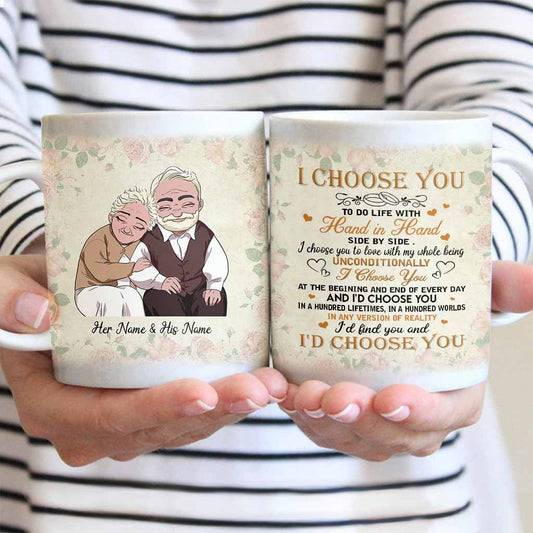 Her Name & His Name
I CHOOSE YOU
TO DO LIFE WITH
Hand in Hand
SIDE BY SIDE .
I choose you to love with my whole being
UNCONDITIONALLY
I Choose You
AT THE BEGINING AND END OF EVERY DAY
AND I'D CHOOSE YOU
IN A HUNDRED LIFETIMES, IN A HUNDRED WORLDS
IN ANY VERSION OF REALITY
I'd find you and
I'D CHOOSE YOU